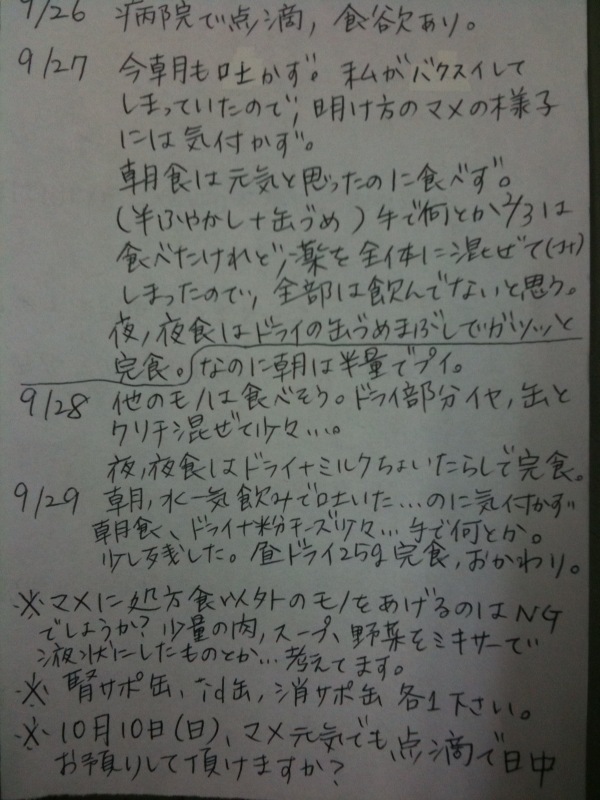 9/26 病院で点滴,食欲あり。
9/27 今朝も吐かず。私がバクスイして
しまっていたので,明け方のマメの様子
には気付かず。
朝食は元気と思ったのに食べず。
(半ふやかし+缶づめ)手で何とか2/3は
食べたけれど,薬を全体に混ぜて
しまったので,全部は飲んでないと思う。
夜,夜食はドライの缶づめまぶしでガツッと
完食。なのに朝は半量でプイ。
9/28 他のモノは食べそう。ドライ部分イヤ,缶と
クリチ混ぜて少々…。
夜,夜食はドライ+ミルクちょいたらしで完食。
9/29 朝,水一気飲みで吐いた…のに気付かず
朝食、ドライ+粉チーズ少々…手で何とか。
少し残した。昼ドライ25g完食,おかわり。
※マメに処方食以外のモノをあげるのはNG
でしょうか?少量の肉,スープ、野菜をミキサーで
液状にしたものとか…考えてます。
※腎サポ缶、i/d缶,消サポ缶 各1下さい。
※10月10日(日)、マメ元気でも、点滴で日中
お預りして頂けますか?